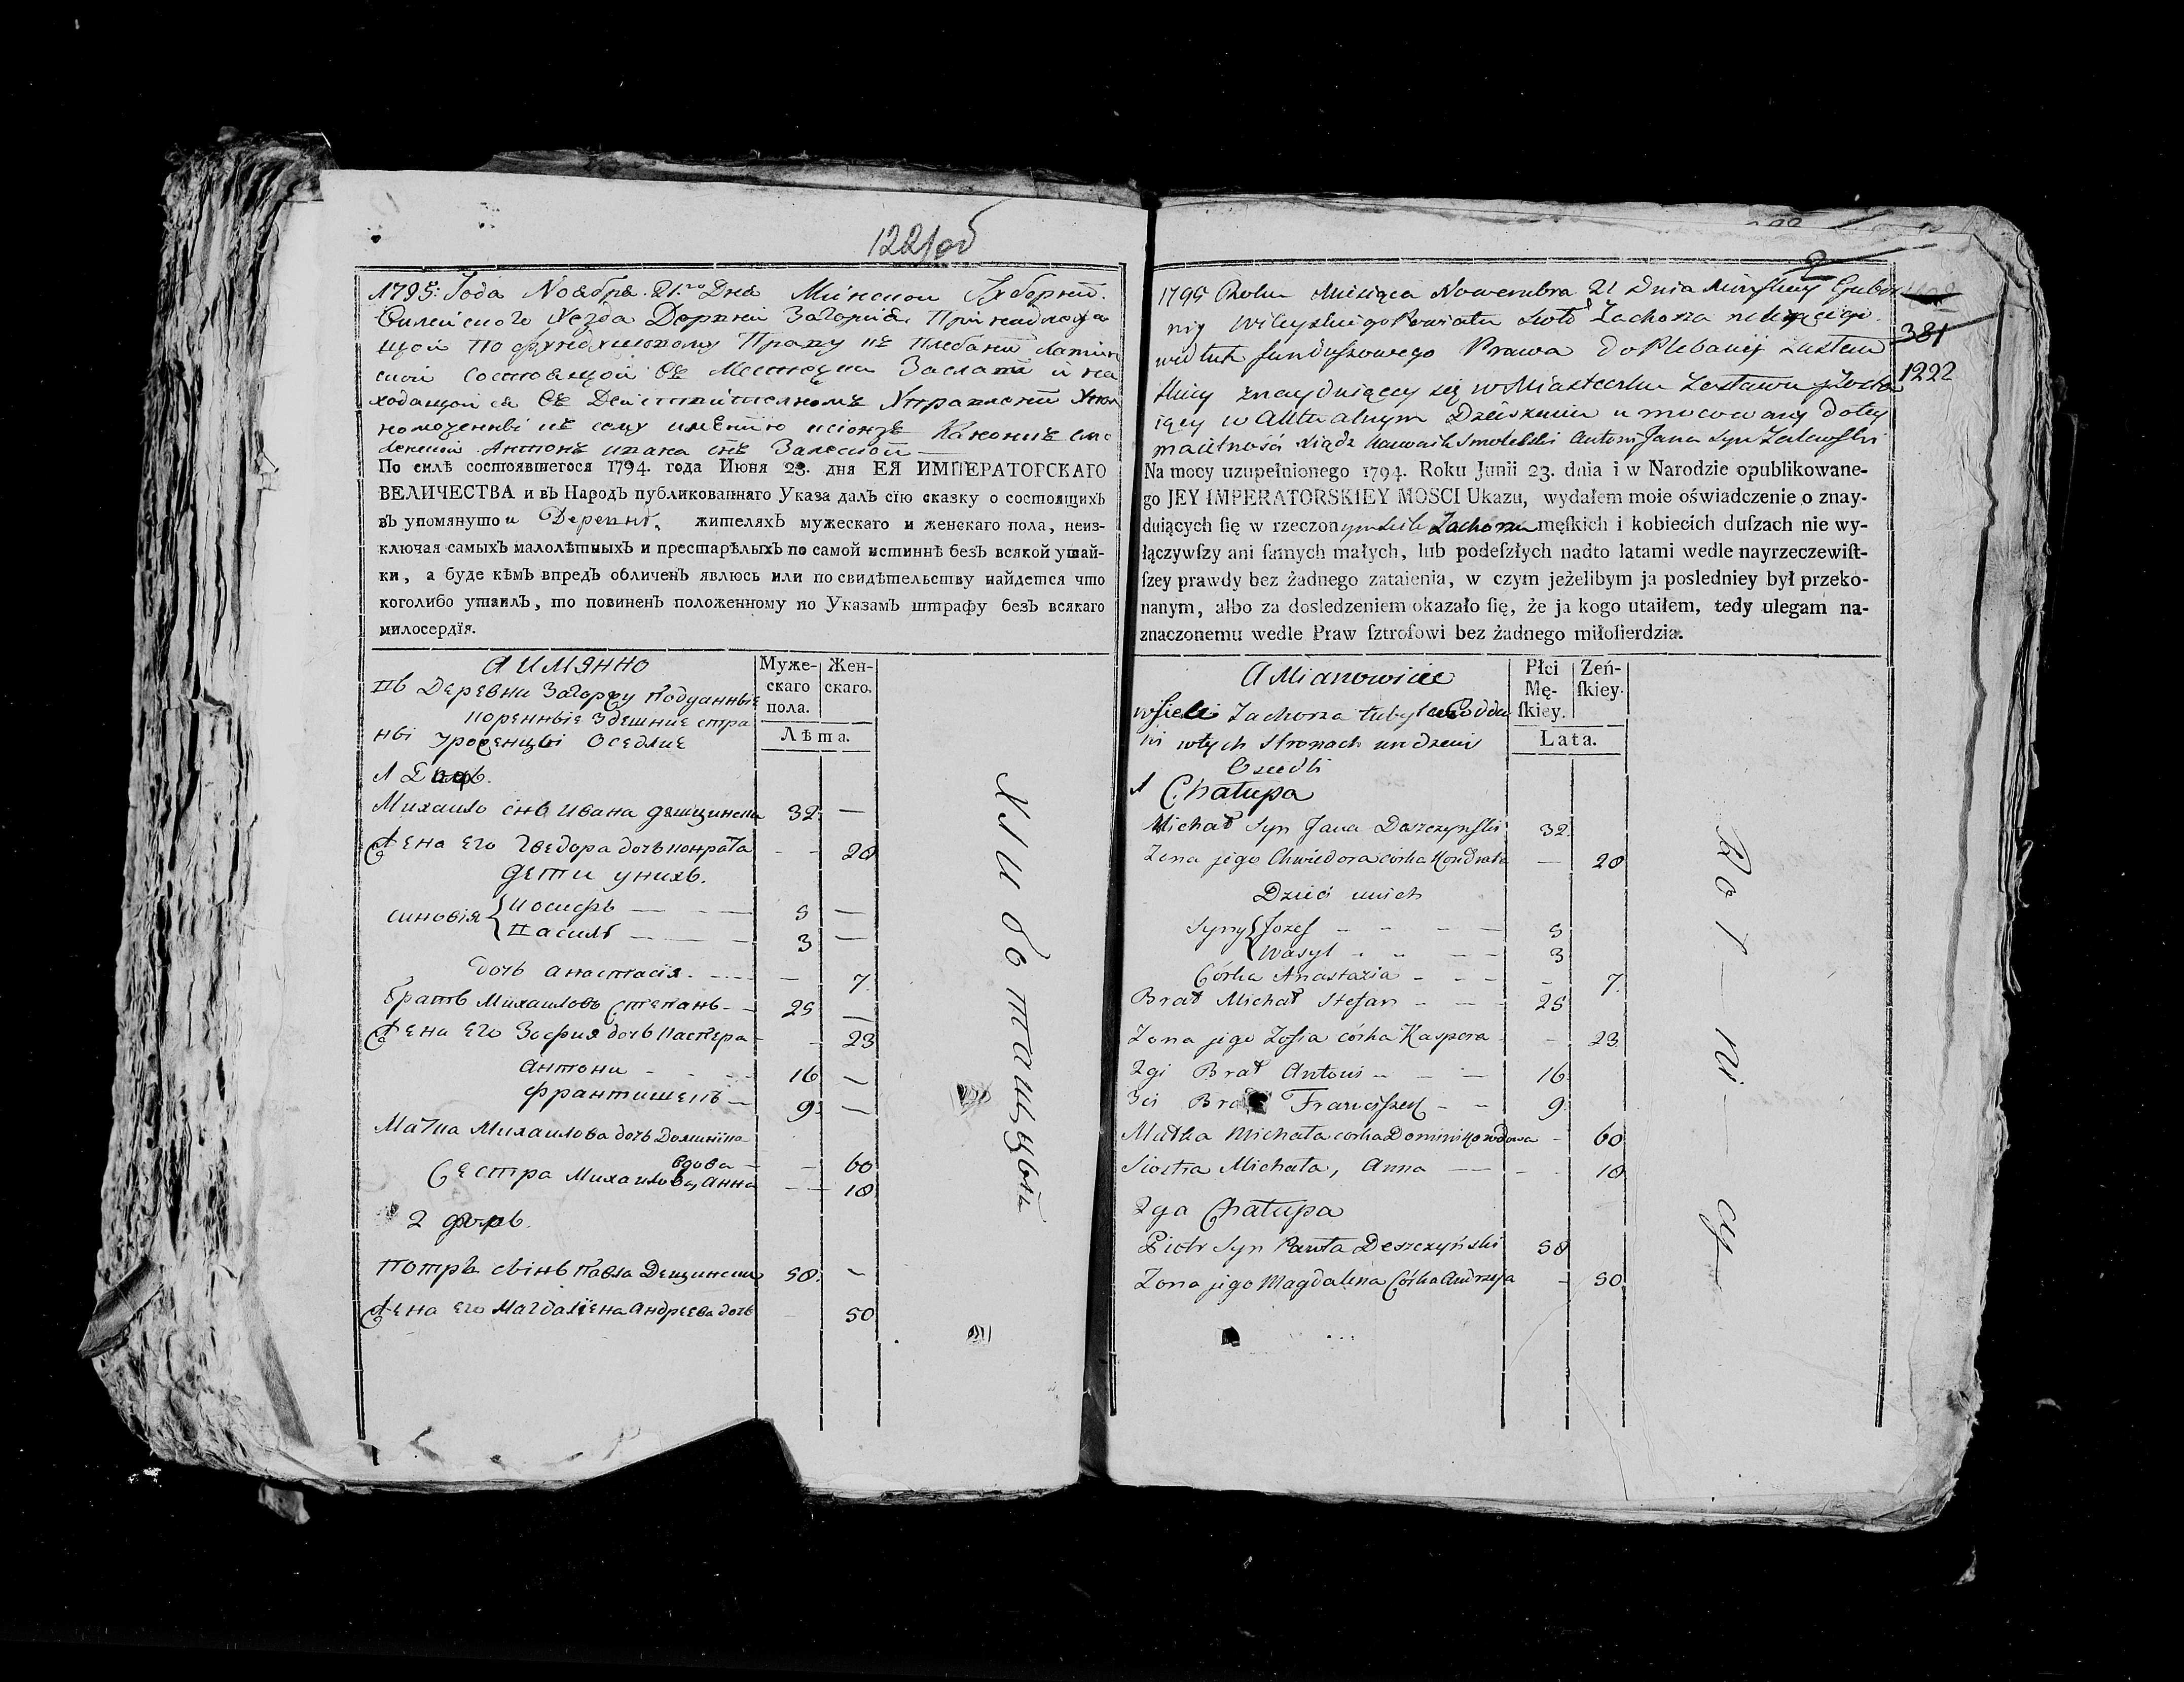 1221об
1795: Года Ноября 21.го Дня Минской Губернїи.
Вилейского Уезда Деревни Загорья Принадлежа
щой По фундушовому Праву къ Плебанїи Латин
ской состоящой въ Местечку и на
ходящой ся въ Действительномъ Управленїи Упол
номоченный къ сему имѣнїю ксіондзъ Каноникъ смо
ленской Антонъ Ивана сынъ Залеской
По силѣ состоявшегося 1794. года Июня 23. дня ЕЯ ИМПЕРАТОРСКАГО
ВЕЛИЧЕСТВА и въ Народъ публикованнаго Указа далъ сїю сказку о состоящихъ
въ упомянутои Деревнѣ, жителяхъ мужескаго и женскаго пола, неиз-
ключая самыхъ малолѣтныхъ и престарѣлыхъ по самой истиннѣ безъ всякой утай-
ки, а буде кѣмъ впредъ обличенъ явлюсь или по свидѣтельству найдется что
коголибо утаилъ, то повиненъ положенному по Указамъ штрафу безъ всякаго
милосердїя.
А ИМЯННО
Муже-
скаго
пола.
Жен-
скаго.
Лѣта.
въ Деревни Загоржу Подданные
коренные Здешние стра
ны Уроженцы Оседлие
1
Михаило снъ Ивана Дещински 32. —
Жена Его Хведора дочь Кондрата - - 20
Дети у нихъ.
синовія { Иосифъ — 5 —
Василь — 3 —
Дочь Анастасія. — — 7.
Братъ Михаиловъ Степанъ - - 25 —
Жена Его Зофия дочь Каспера - - 23
Антони - 16 —
Франтишекъ — 9. —
Матка Михаилова дочь Доминика
вдова — — 60
Сестра Михаилова, Анна - — 10
2
Потръ сынь Павла Дещински 50. —
Жена Его Магдалїена Андреева дочь 50
2
381
1222
1795 Roku Miesiąca Nowembra 21 Dnia Minskiey Guber
nij Wileyskiego Powiatu Sioło Zachorza należącego
wedłuk funduszowego Prawa do Plebanij
znayduiącey się w Miasteczku
iącey w Aktualnym Dzierżeniu umocowany do tey
maiętności Xiądz Kanonik Smoleński Antoni Jana Syn Zaleski
Na mocy uzupełnionego 1794. Roku Junii 23. dnia i w Narodzie opublikowane-
go JEY IMPERATORSKIEY MOSCI Ukazu, wydałem moie oświadczenie o znay-
duiących ſię w rzeczonym Siele Zachorzu męſkich i kobiecich duſzach nie wy-
łączywſzy ani ſamych małych, lub podeſzłych nadto latami wedle nayrzeczewiſt-
ſzey prawdy bez żadnego zataienia, w czym jeżelibym ja posledniey był przeko-
nanym, albo za dosledzeniem okazało ſię, że ja kogo utaiłem, tedy ulegam na-
znaczonemu wedle Praw ſztroſowi bez żadnego miłoſierdzia.
A Mianowicie
Płci
Mę-
ſkiey.
Zeń-
ſkiey.
Lata.
w Siele Zachorza tubylcy Podda
ni w tych Stronach urodzeni
Osiedli
1 Chałupa
Michał Syn Jana Deszczynski 32.
Zona jego Chwiedora córka Kondrata — 20
Dzieci unich
Syny { Jozef - - — 5
Wasyl - - — 3
Córka Anastazia - - - - 7.
Brat Michał Stefan - — 25
Zona jego Zofia córka Kaspera - - 23
2gi Brat Antoni - — 16
3ci Brat Franciszek - - 9
Matka Michała corka Dominika wdowa - 60
Siostra Michała, Anna — - 10
2ga Chałupa
Piotr Syn Pawła Deszczyński 50
Zona jego Magdalena Córka Andrzeja - 50